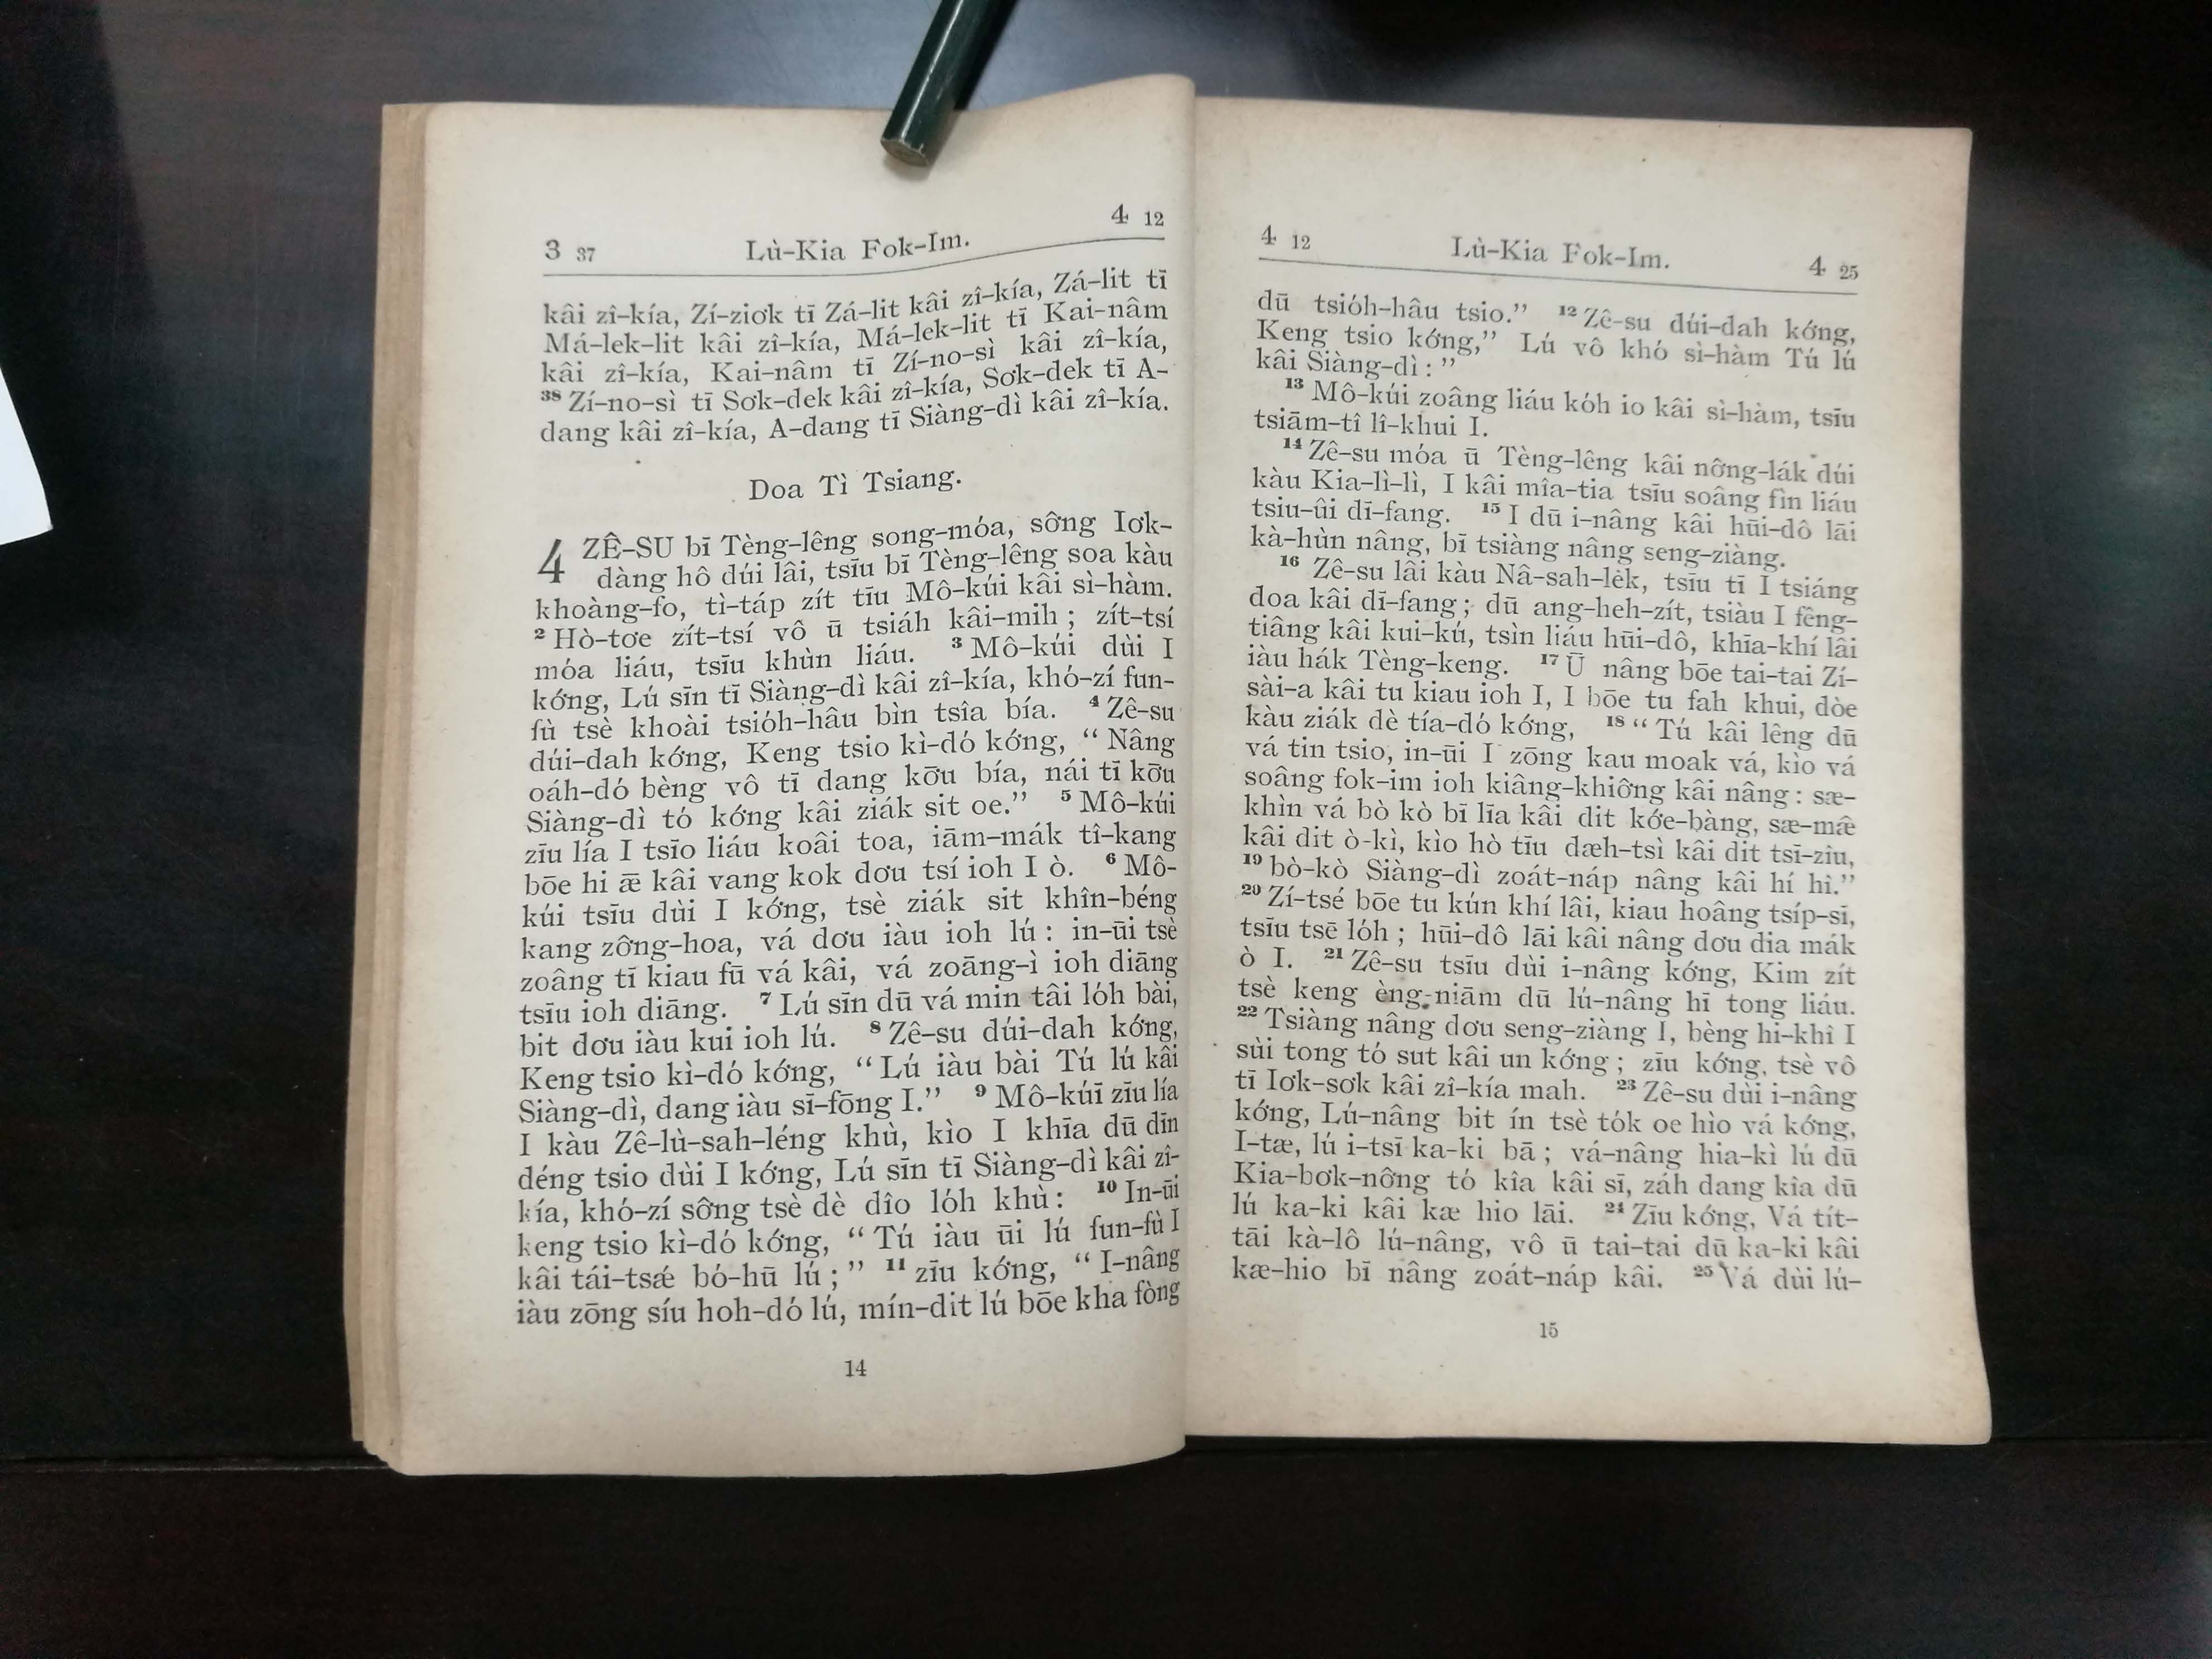 3 37 Lù-Kia Fok-Im. 4 12
kâi zî-kía, Zí-ziơk tī Zá-lit kâi zî-kía, Zá-lit tī
Má-lek-lit kâi zî-kía, Má-lek-lit tī Kai-nâm
kâi zî-kía, Kai-nâm tī Zí-no-sì kâi zî-kía,
38 Zí-no-sì tī Sơk-dek kâi zî-kía, Sơk-dek tī A-
dang kâi zî-kía, A-dang tī Siàng-dì kâi zî-kía.
Doa Tì Tsiang.
4 ZÊ-SU bī Tèng-lêng song-móa, sơ̂ng Iơk-
dàng hô dúi lâi, tsīu bī Tèng-lêng soa kàu
khoàng-fo, tì-táp zít tīu Mô-kúi kâi sì-hàm.
2 Hò-tơe zít-tsí vô ū tsiáh kâi-mih ; zít-tsí
móa liáu, tsīu khùn liáu. 3 Mô-kúi dùi I
kớng, Lú sīn tī Siàng-dì kâi zî-kía, khó-zí fun-
fù tsè khoài tsióh-hâu bìn tsîa bía. 4 Zê-su
dúi-dah kớng, Keng tsio kì-dó kớng, “ Nâng
oáh-dó bèng vô tī dang kơ̄u bía, nái tī kơ̄u
Siàng-dì tó kớng kâi ziák sit oe.” 5 Mô-kúi
zīu lía I tsīo liáu koâi toa, iām-mák tî-kang
bōe hi ǣ kâi vang kok dơu tsí ioh I ò. 6 Mô-
kúi tsīu dùi I kớng, tsè ziák sit khîn-béng
kang zơ̂ng-hoa, vá dơu iàu ioh lú : in-ūi tsè
zoâng tī kiau fū vá kâi, vá zoāng-ì ioh diāng
tsīu ioh diāng. 7 Lú sīn dū vá min tâi lóh bài,
bit dơu iàu kui ioh lú. 8 Zê-su dúi-dah kớng,
Keng tsio kì-dó kớng, “ Lú iàu bài Tú lú kâi
Siàng-dì, dang iàu sī-fōng I.” 9 Mô-kúī zīu lía
I kàu Zê-lù-sah-léng khù, kìo I khīa dū dīn
déng tsio dùi I kớng, Lú sīn tī Siàng-dì kâi zî-
kía, khó-zí sơ̂ng tsè dè dîo lóh khù : 10 In-ūi
keng tsio kì-dó kớng, “ Tú iàu ūi lú fun-fù I
kâi tái-tsǽ bó-hū lú ; ” 11 zīu kớng, “ I-nâng
iàu zōng síu hoh-dó lú, mín-dit lú bōe kha fòng
14
4 12 Lù-Kia Fok-Im. 4 25
dū tsióh-hâu tsio.” 12 Zê-su dúi-dah kớng,
Keng tsio kớng,” Lú vô khó sì-hàm Tú lú
kâi Siàng-dì : ”
13 Mô-kúi zoâng liáu kóh io kâi sì-hàm, tsīu
tsiām-tî lî-khui I.
14 Zê-su móa ū Tèng-lêng kâi nơ̂ng-lák dúi
kàu Kia-lì-lì, I kâi mîa-tia tsīu soâng fìn liáu
tsiu-ûi dī-fang. 15 I dū i-nâng kâi hūi-dô lāi
kà-hùn nâng, bī tsiàng nâng seng-ziàng.
16 Zê-su lâi kàu Nâ-sah-lėk, tsīu tī I tsiáng
doa kâi dī-fang ; dū ang-heh-zít, tsiàu I fêng-
tiâng kâi kui-kú, tsìn liáu hūi-dô, khīa-khí lâi
iàu hák Tèng-keng. 17 Ū nâng bōe tai-tai Zí-
sài-a kâi tu kiau ioh I, I bōe tu fah khui, dòe
kàu ziák dè tía-dó kớng, 18 “ Tú kâi lêng dū
vá tin tsio, in-ūi I zōng kau moak vá, kìo vá
soâng fok-im ioh kiâng-khiơ̂ng kâi nâng : sæ-
khìn vá bò kò bī līa kâi dit kóe-bàng, sæ-mæ̂
kâi dit ò-kì, kìo hò tīu dæh-tsì kâi dit tsī-zîu,
19 bò-kò Siàng-dì zoát-náp nâng kâi hí hì.”
20 Zí-tsé bōe tu kún khí lâi, kiau hoâng tsíp-sī,
tsīu tsē lóh ; hūi-dô lāi kâi nâng dơu dia mák
ò I. 21 Zê-su tsīu dùi i-nâng kớng, Kim zít
tsè keng èng-niām dū lú-nâng hī tong liáu.
22 Tsiàng nâng dơu seng-ziàng I, bèng hi-khî I
sùi tong tó sut kâi un kớng ; zīu kớng, tsè vô
tī Iơk-sơk kâi zî-kía mah. 23 Zê-su dùi i-nâng
kớng, Lú-nâng bit ín tsè tók oe hìo vá kớng,
I-tæ, lú i-tsī ka-ki bā ; vá-nâng hia-kì lú dū
Kia-bơk-nơ̂ng tó kîa kâi sī, záh dang kîa dū
lú ka-ki kâi kæ hio lāi. 24 Zīu kớng, Vá tít-
tāi kà-lô lú-nâng, vô ū tai-tai dū ka-ki kâi
kæ-hio bī nâng zoát-náp kâi. 25 Vá dùi lú-
15